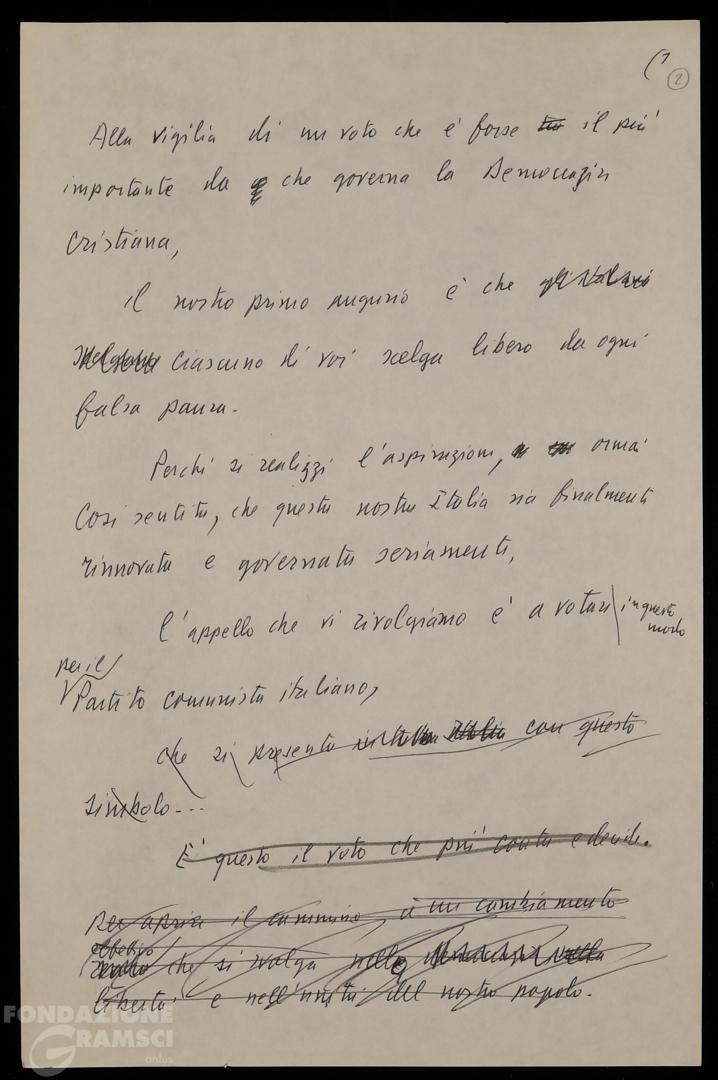 (1
2
Alla vigilia di un voto che è forse il più
importante da che governa la Democrazia
Cristiana,
il nostro primo augurio è che gli italiani
ciascuno di voi scelga libero da ogni
falsa paura.
Perché si realizzi l'aspirazione, ormai
così sentita, che questa nostra Italia sia finalmente
rinnovata e governata seriamente,
l'appello che vi rivolgiamo è a votare in questo
modo
per il
Partito comunista italiano,
che si presenta in tutta Italia con questo
simbolo...
E' questo il voto che più conta e decide.
Per aprire il cammino, a un cambiamento
che si svolga nella
libertà e nell'unità del nostro popolo.
FONDAZIONE
GRAMSCI
onlus